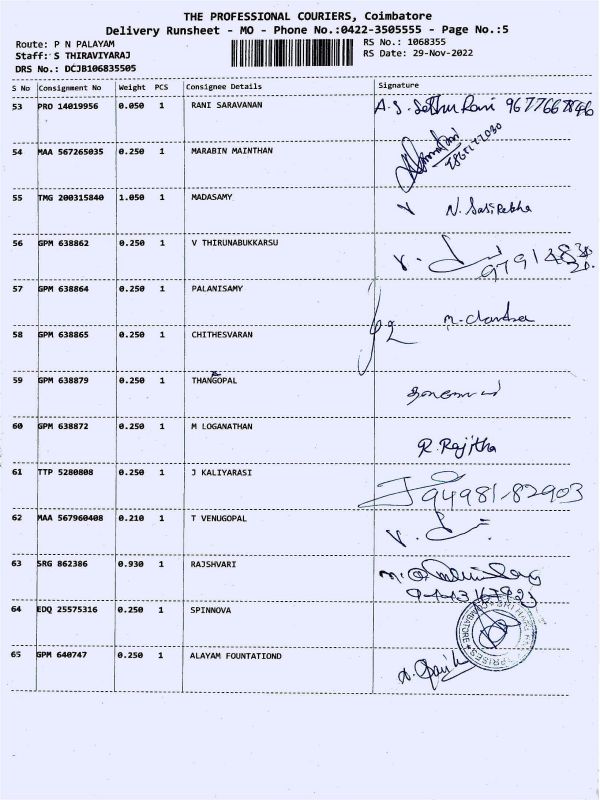 THE PROFESSIONAL COURIERS, Coimbatore
Delivery Runsheet - MO - Phone No.:0422-3505555 - Page No.:5
Route: P N PALAYAM
RS No.: 1068355
Staff: S THIRAVIYARAJ
RS Date: 29-Nov-2022
DRS No.: DCJB106835505
S No Consignment No Weight PCS Consignee Details Signature
53 PRO 14019956 0.050 1 RANI SARAVANAN A.S. Sethu Rani 9677667846
54 MAA 567265035 0.250 1 MARABIN MAINTHAN
55 TMG 200315840 1.050 1 MADASAMY N. Sasirekha
56 GPM 638862 0.250 1 V THIRUNABUKKARSU
57 GPM 638864 0.250 1 PALANISAMY
58 GPM 638865 0.250 1 CHITHESVARAN
59 GPM 638879 0.250 1 THANGOPAL
60 GPM 638872 0.250 1 M LOGANATHAN R. Rajitha
61 TTP 5280808 0.250 1 J KALIYARASI 94981-82903
62 MAA 567960408 0.210 1 T VENUGOPAL
63 SRG 862386 0.930 1 RAJSHVARI
64 EDQ 25575316 0.250 1 SPINNOVA
65 GPM 640747 0.250 1 ALAYAM FOUNTATIOND